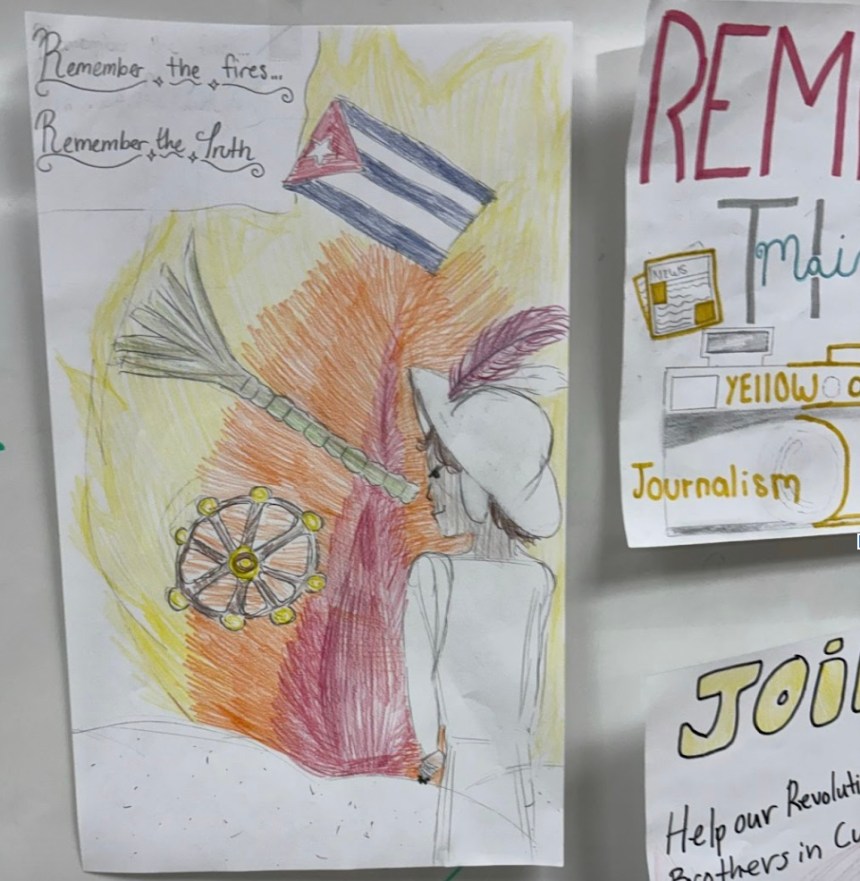 Remember the fires...
Remember the Truth
REM
TH
Mai
NEWS
YEllOW
Journalism
JOi
Help our Revoluti
Brothers in Cu